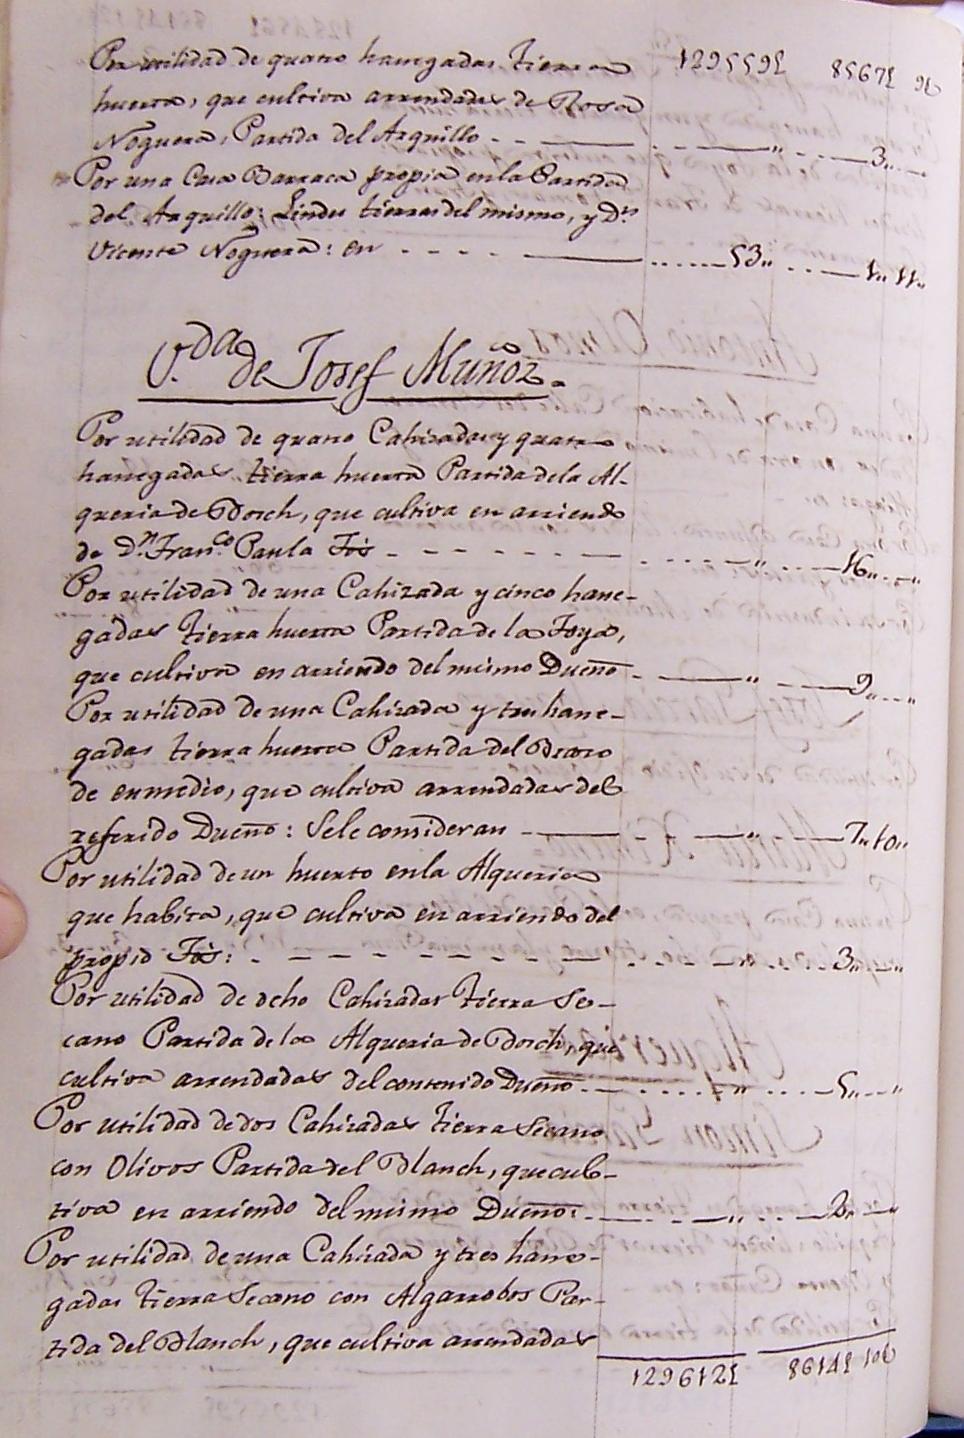 Por utilidad de quatro hanegadas tierra 129559£ 8567£ 9s
huerta, que cultiva arrendadas de Rosa
Noguera, Partida del Arquillo - - - „ - - - 3„ - „
Por una Casa Barraca propia en la Partida
del Arquillo: Lindes tierras del mismo, y Dn.
Vicente Noguera: en - - - - 53„ - - - 1„ 11„
V.da de Josef Muñoz.
Por utilidad de quatro Cahizadas y quatro
hanegadas tierra huerta Partida de la Al-
queria de Bosch, que cultiva en arriendo
de Dn. Franco. Paula Fos - - - - „ - - - 16„ - „
Por utilidad de una Cahizada y cinco hane-
gadas tierra huerta Partida de la Foya,
que cultiva en arriendo del mismo Dueño - - „ - - 9„ - „
Por utilidad de una Cahizada y tres hane-
gadas tierra huerta Partida del Brazo
de enmedio, que cultiva arrendadas del
referido Dueño: Sele consideran - - - „ - - 7„ 10„
Por utilidad de un huerto en la Alqueria
que habita, que cultiva en arriendo del
propio Fos: - - - - - - „ - - 3„ - „
Por utilidad de ocho Cahizadas tierra Se-
cano Partida de la Alqueria de Bosch, que
cultiva arrendadas del contenido Dueño - - - „ - - 5„ - „
Por utilidad de dos Cahizadas tierra Secano
con Olivos Partida del Blanch, que cul-
tiva en arriendo del mismo Dueño: - - - „ - - 2„ - „
Por utilidad de una Cahizada y tres hane-
gadas tierra Secano con Algarrobos Par-
tida del Blanch, que cultiva arrendadas
129612£ 8614£ 10s